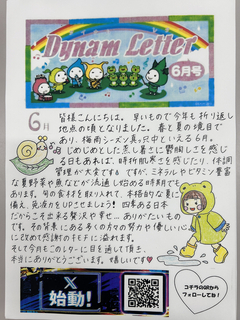 Dynam Letter
6月号
6月
皆様こんにちは。早いもので今年も折り返し
地点の頃となりました。春と夏の境目で
あり、梅雨シーズン真っ只中といえる6月。
じめじめとした蒸し暑さに鬱陶しさを感じ
る日もあれば、時折肌寒さを感じたり、体調
管理が大変ですね ですが、ミネラルやビタミン豊富
な夏野菜や魚などが流通し始める時期でも
あります。旬の食材を取り入れて、本格的な夏に
備え、免疫力をUPさせましょう! 四季ある日本
だからこそ出来る贅沢や幸せ... ありがたいもので
す。その背景にある多くの方々の努力や優しい
に改めて感謝の手もFに溢れます。
そして今月もこのレターに目を通して頂き、
本当にありがとうございます。嬉しいです♥
X
始動!
コチラのQRから
フォローしてね!